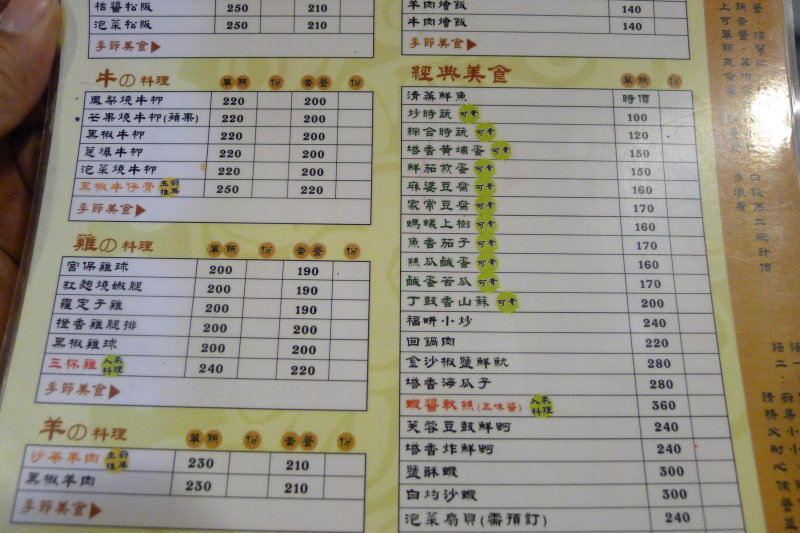 桔醬松阪 250 210
泡菜松阪 250 210
季節美食▶
牛の料理 單點 1份 套餐 1份
鳳梨燒牛柳 220 200
芒果燒牛柳(蘋果) 220 200
黑椒牛柳 220 200
蔥爆牛柳 220 200
泡菜燒牛柳 220 200
黑椒牛仔骨 主廚推薦 250 220
季節美食▶
雞の料理 單點 1份 套餐 1份
宮保雞球 200 190
紅麴燒嫩腿 200 190
羅定子雞 200 190
橙香雞腿排 200 200
黑椒雞球 200 200
三杯雞 人氣料理 240 220
季節美食▶
羊の料理 單點 1份 套餐 1份
沙茶羊肉 主廚推薦 230 210
黑椒羊肉 230 210
季節美食▶
羊肉燴飯 140
牛肉燴飯 140
季節美食▶
經典美食 單點 1份
清蒸鮮魚 時價
炒時蔬 可素 100
綜合時蔬 可素 120
塔香黃埔蛋 可素 150
鮮茄煎蛋 可素 150
麻婆豆腐 可素 160
家常豆腐 可素 170
螞蟻上樹 可素 160
魚香茄子 可素 170
絲瓜鹹蛋 可素 160
鹹蛋苦瓜 可素 170
丁鼓香山蘇 可素 200
福畊小炒 240
回鍋肉 220
金沙椒鹽鮮魷 280
塔香海瓜子 280
蝦醬軟絲(五味醬) 人氣料理 360
芙蓉豆鼓鮮蚵 240
塔香炸鮮蚵 240
鹽酥蝦 300
白灼沙蝦 300
泡菜扇貝(需預訂) 240